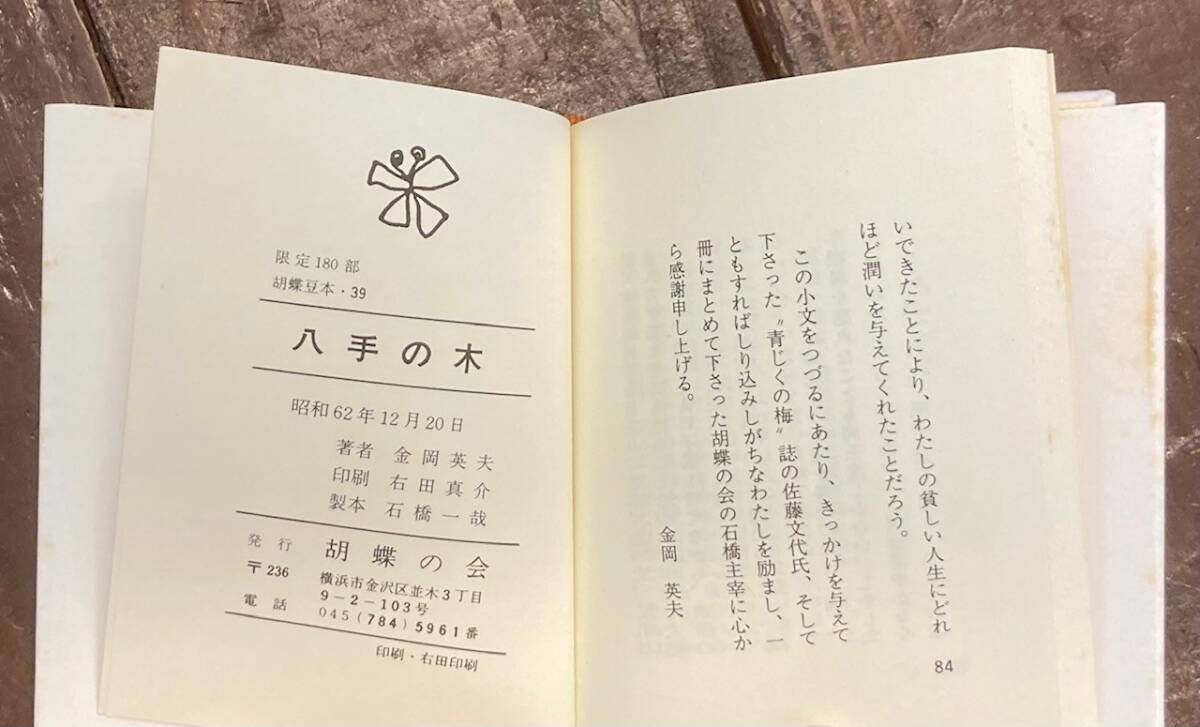 いできたことにより、わたしの貧しい人生にどれ
ほど潤いを与えてくれたことだろう。
この小文をつづるにあたり、きっかけを与えて
下さった〝青じくの梅〟誌の佐藤文代氏、そして
ともすればしり込みしがちなわたしを励まし、一
冊にまとめて下さった胡蝶の会の石橋主宰に心か
ら感謝申し上げる。
金岡 英夫
84
限定180部
胡蝶豆本・39
八手の木
昭和62年12月20日
著者 金岡英夫
印刷 右田真介
製本 石橋一哉
発行 胡蝶の会
〒236 横浜市金沢区並木3丁目
9-2-103号
電話 045(784)5961番
印刷・右田印刷